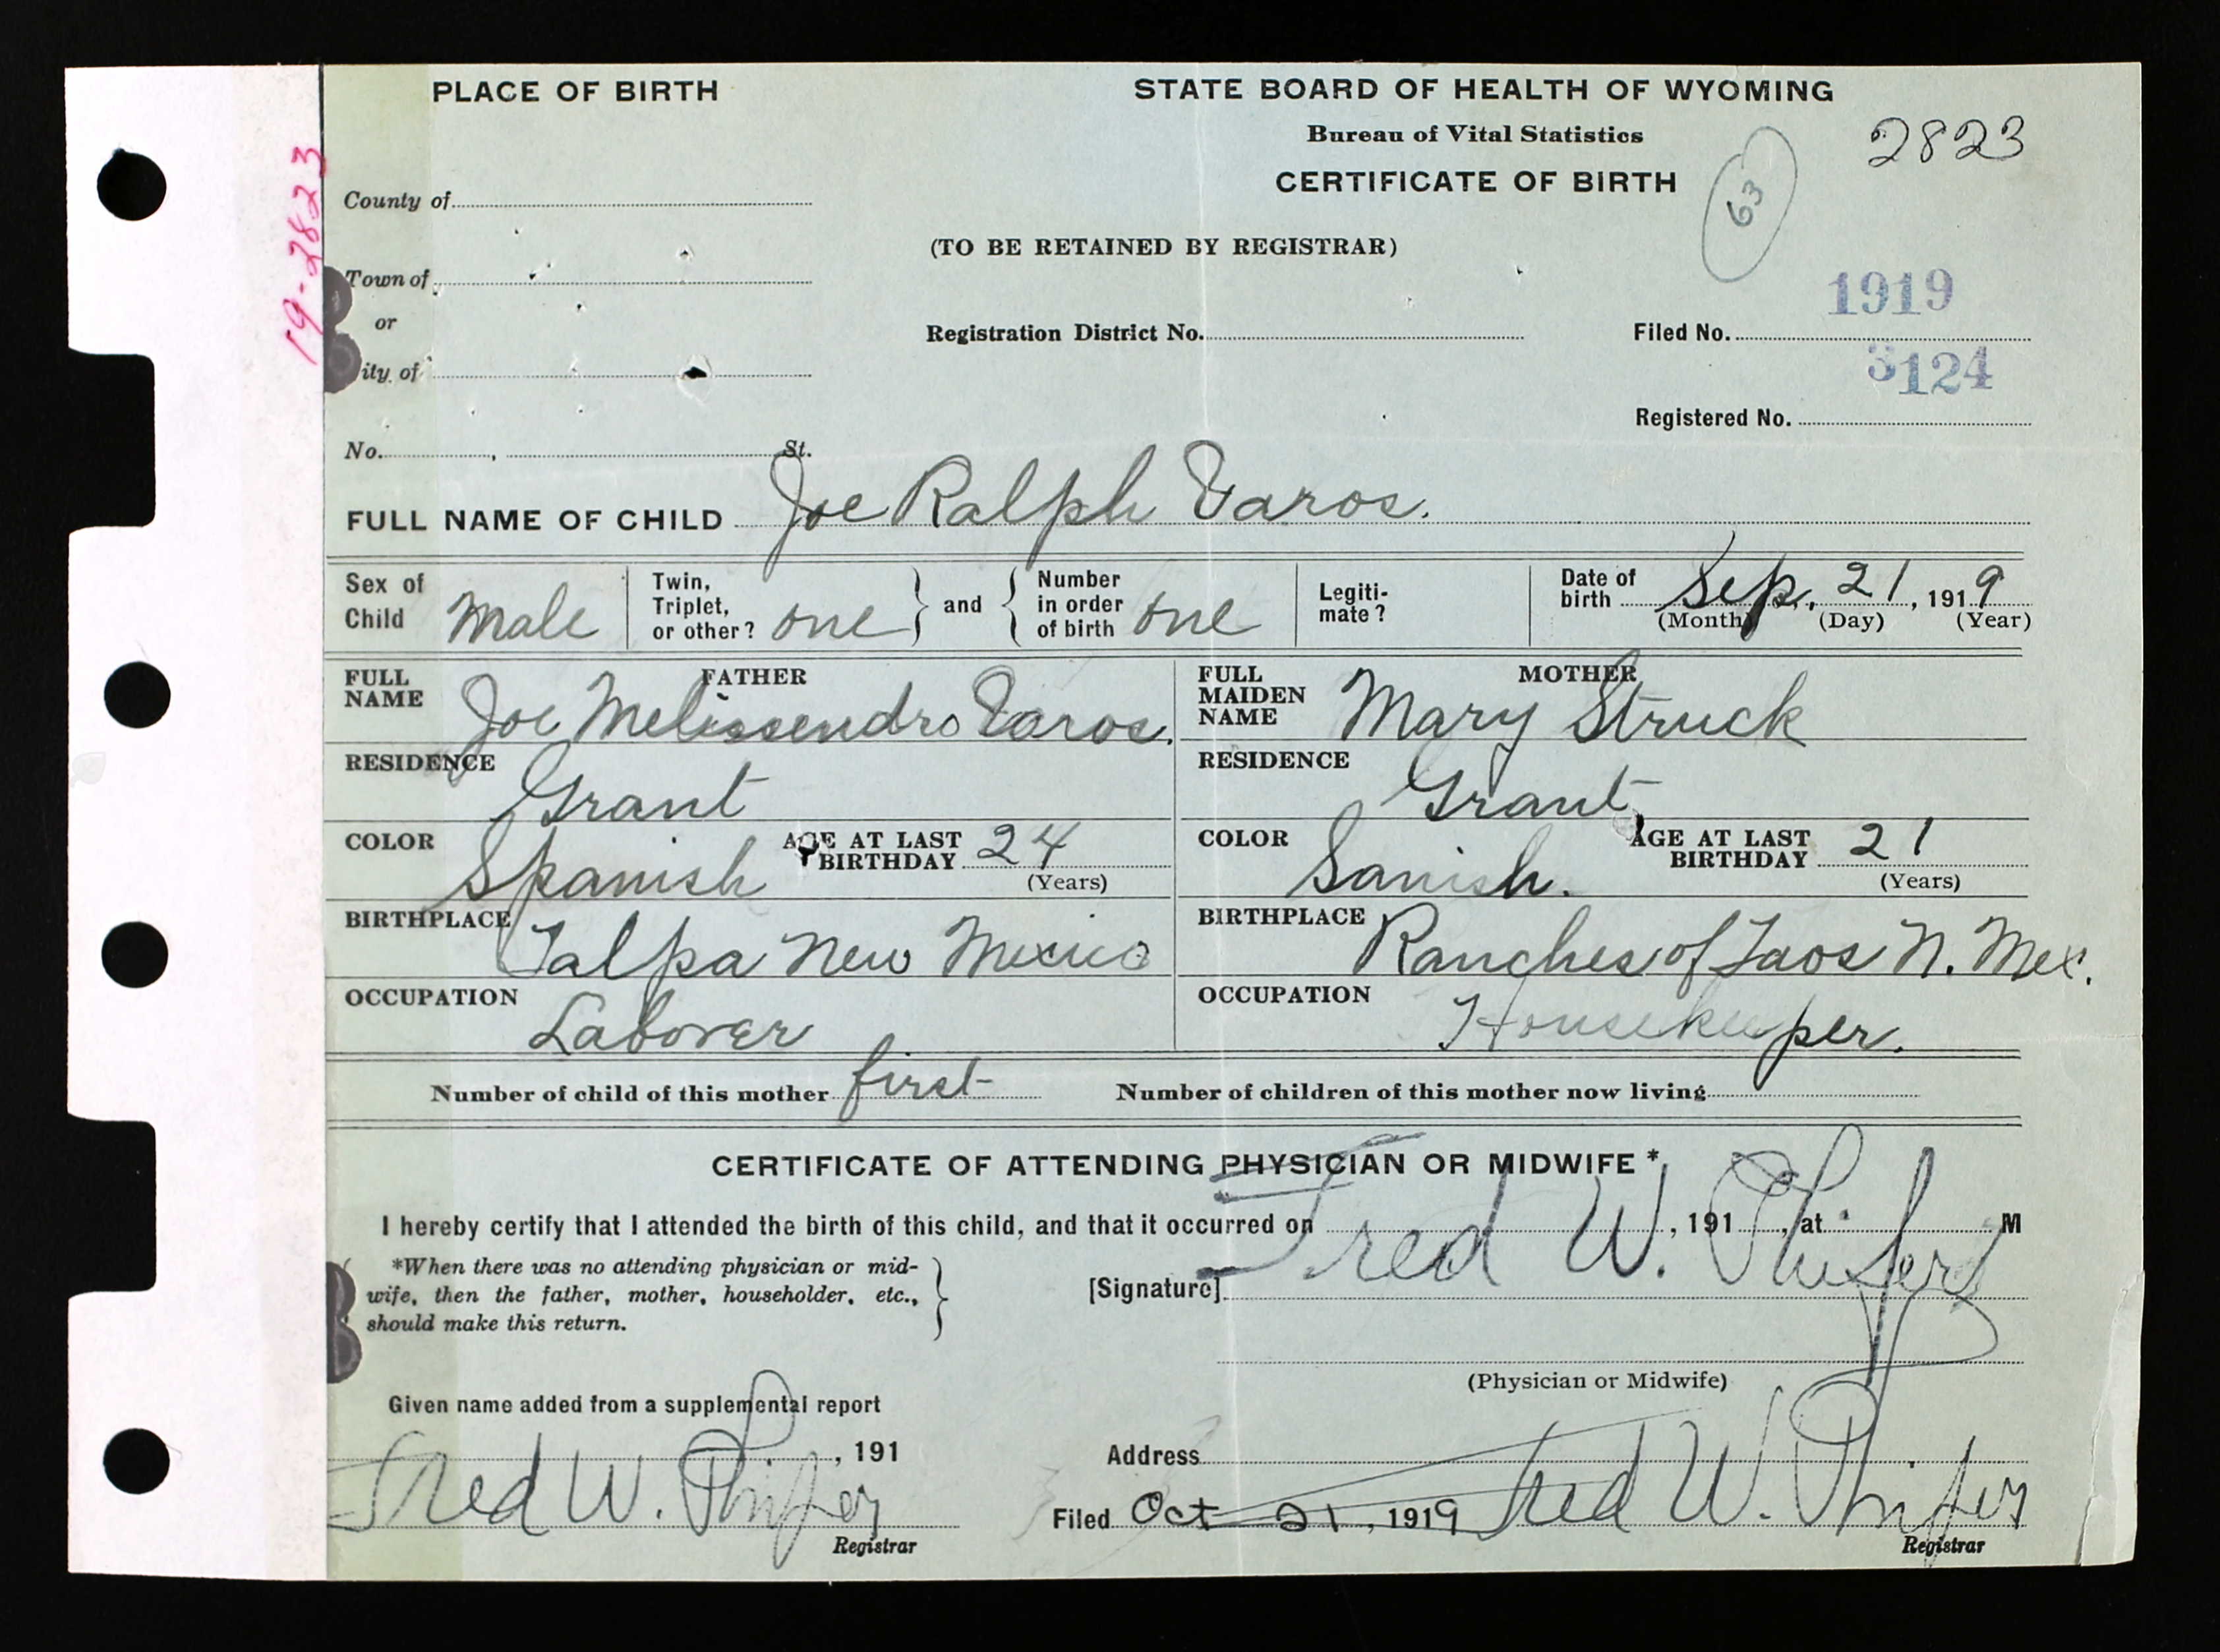 PLACE OF BIRTH
STATE BOARD OF HEALTH OF WYOMING
Bureau of Vital Statistics
2823
CERTIFICATE OF BIRTH
63
19-2823
County of
(TO BE RETAINED BY REGISTRAR)
Town of
or
1919
Registration District No.
Filed No.
ity of
3124
Registered No.
No. , St.
FULL NAME OF CHILD Joe Ralph Varos.
Sex of Child Male Twin, Triplet, or other? one and Number in order of birth one Legiti-mate? Date of birth Sep, 21, 1919
(Month) (Day) (Year)
FATHER
FULL NAME Joe Melissendro Varos.
MOTHER
FULL MAIDEN NAME Mary Struck
RESIDENCE Grant
RESIDENCE Grant
COLOR Spanish AGE AT LAST BIRTHDAY 24 (Years)
COLOR Sanish. AGE AT LAST BIRTHDAY 21 (Years)
BIRTHPLACE Talpa New Mexico
BIRTHPLACE Ranches of Taos N. Mex.
OCCUPATION Laborer
OCCUPATION Housekeeper.
Number of child of this mother first Number of children of this mother now living
CERTIFICATE OF ATTENDING PHYSICIAN OR MIDWIFE*
I hereby certify that I attended the birth of this child, and that it occurred on , 191 , at M
*When there was no attending physician or mid-
wife, then the father, mother, householder, etc.,
should make this return.
[Signature] Fred W. Phifer
(Physician or Midwife)
Given name added from a supplemental report
, 191
Address
Fred W. Phifer
Registrar
Filed Oct 21, 1919 Fred W. Phifer
Registrar